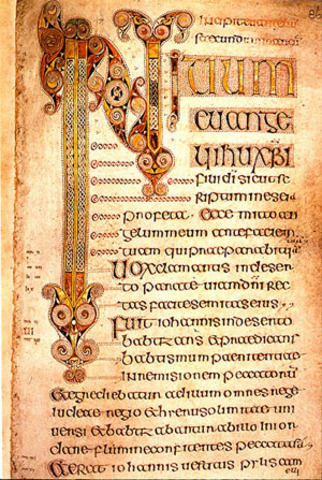 86
INITIUM
euange
lii ihu xpi
fili di sicut sc
riptum in esai
profeta ecce mitto an
gelum meum ante faciem
tuam qui
Uox clamantis in deser
to parate uiam dni rec
tas facite semitas eius
Fuit iohannis in deserto
babtizans et praedicans
babtismum paenitentiae
in remisionem peccatorum
Et egrediebatur ad illum omnes
et uni
uersi et babtizabantur ab illo in ior
dane flumine confitentes peccata
Et erat iohannis uestitus pylis cam
eli